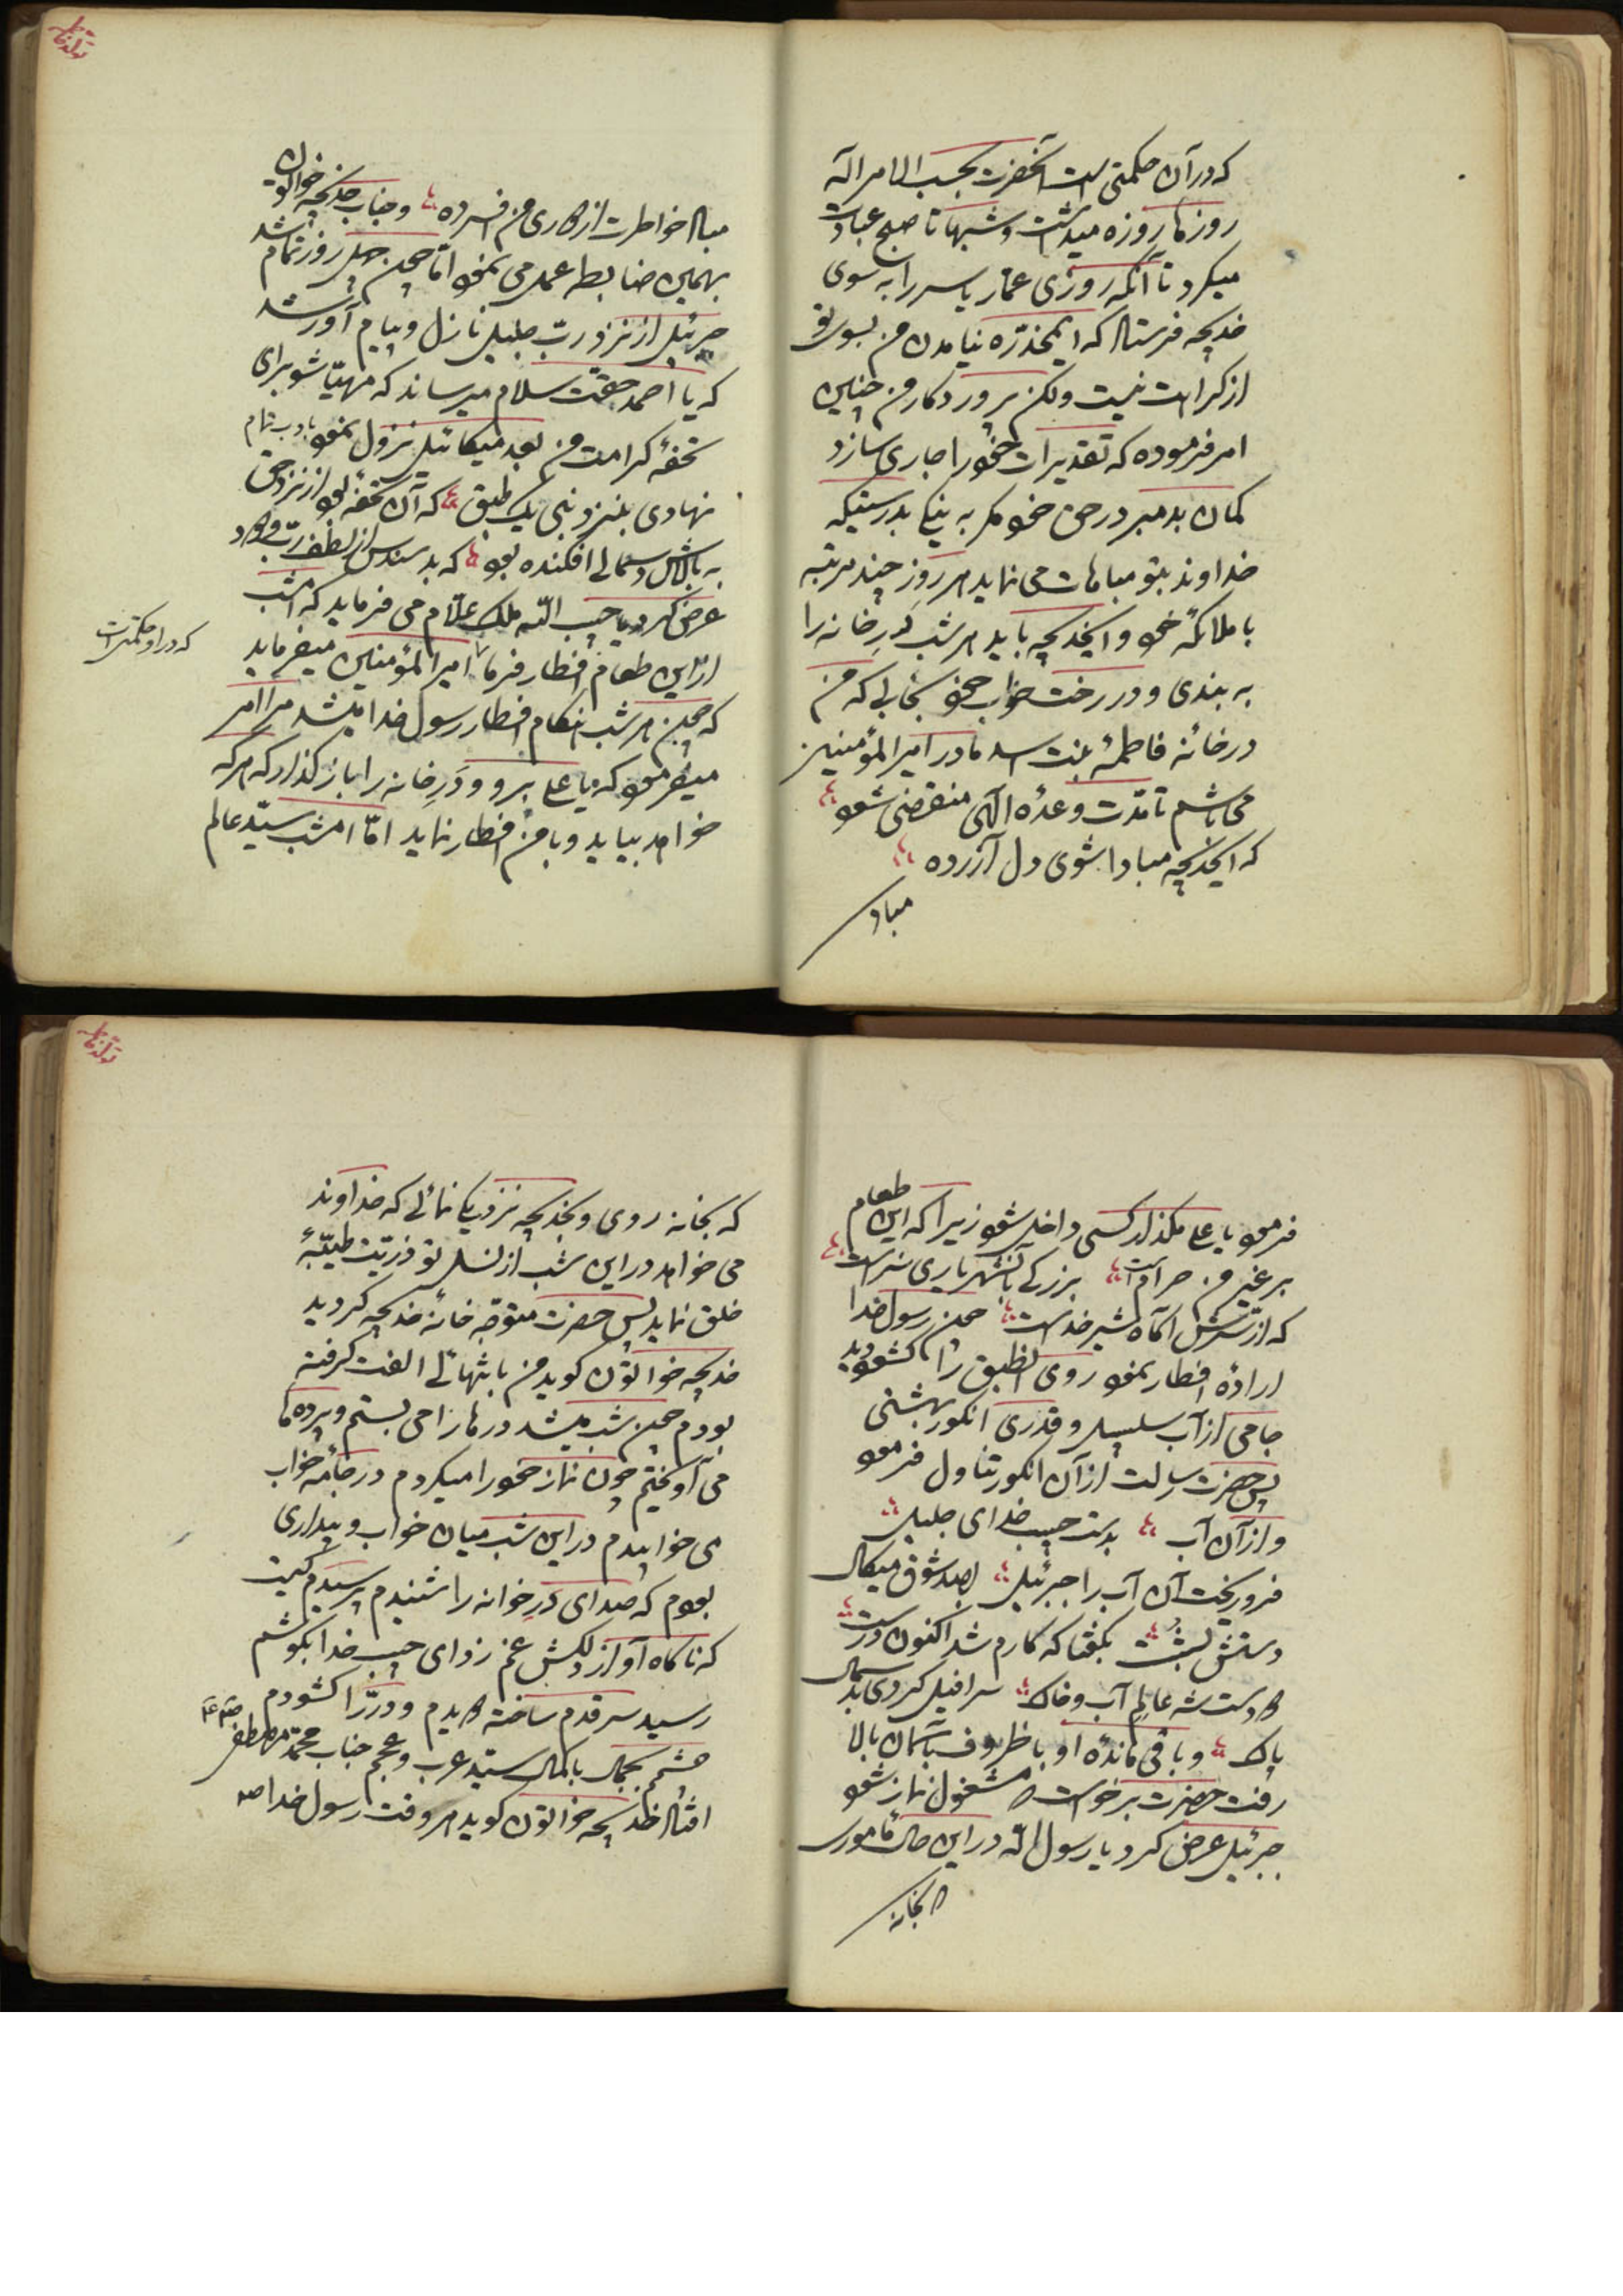 که در آن حکمتی است آنحضرت بحسب الامر اله
روزها روزه میداشت و شبها تا صبح عبادت
میکرد تا آنکه روزی عمار یاسر را به سوی
خدیجه فرستاد که ایمخدّره نیامدن من بسوی تو
از کراهت نیست ولکن پروردکار من چنین
امر فرموده که تقدیرات خود را جاری سازد
کمان بد مبر در حق خود مکر به نیکی بدرستیکه
خداوند بتو مباهات می نماید هر روز چند مرتبه
با ملائکهٔ خود و ایخدیجه باید هر شب دَرِ خانه را
به بندی و در رخت خواب خود بخابی که من
در خانهٔ فاطمهٔ بنت اسد مادر امیرالمؤمنین
می باشم تا مدّت وعدهٔ الهی منقضی شود
که ایخدیجه مبادا شوی دل آزرده
مباد
تولد فاطمه
مباد خواطرت از کاری من افسرده و جناب خدیجه خواتون
بهمین ضابطه عمل می نمود امّا چون چهل روز تمام شد
جبرئیل از نزد ربّ جلیل نازل و پیام آور شد
که یا احمد حقّت سلام میرساند که مهیّا شو برای
تحفهٔ کرامت من بعد میکائیل نزول نمود با دب تمام
نهادی بنزد نبی یک طبق که آن تحفه بود از نزد حق
به بالاش دسمالی افکنده بود که بد سندس از لطف ربّ ودود
عرض کرد یا حبیب اللّه ملک علّام می فرماید که امشب
از این طعام افطار فرما امیرالمؤمنین میفرماید
که در او حکمتی است
که چون هر شب هنکام افطار رسول خدا میشد مرا امر
میفرمود که یا علی برو و دَرِ خانه را باز کذار که هر که
خواهد بیاید و با من افطار نماید امّا امشب سیّد عالم
فرمود یا علی مکذار کسی داخل شود زیرا که این طعام
بر غیر من حرام است بزرکی بآنشهریاری سزاست
که از سرّش آکاه شیر خداست چون رسول خدا
ارادهٔ افطار نمود روی انطبق را کشود دید
جامی از آب سلسبیل و قدری انکور بهشتی
پس حضرت رسالت از آن انکور تناول فرمود
و از آن آب بدست حبیب خدای جلیل
فرو ریخت آن آب را جبرئیل بصد شوق میکال
دستش بشست بکفتا که کارم شد اکنون درست
دو دست شه عالم آب و خاک سرافیل کردی بدسمال
پاک و باقی ماندهٔ او با ظروف بآسمان بالا
رفت حضرت برخواست که مشغول نماز شود
جبرئیل عرض کرد یا رسول اللّه در این حال مأموری
که بخانه
تولد فاطمه
که بخانه روی و بخدیجه نزدیکی نمائی که خداوند
می خواهد در این شب از نسل تو ذریّت طیّبهٔ
خلق نماید پس حضرت متوجّه خانهٔ خدیجه کردید
خدیجه خواتون کوید من با تنهائی الفت کرفته
بودم چون شب میشد درها را می بستم و پرده ها
می آویختم چون نماز خود را میکردم در جامهٔ خواب
می خوابیدم در این شب میان خواب و بیداری
بودم که صدای دَرِ خوانه را شنیدم پرسیدم کیست
که ناکاه آواز دلکش غم زدای حبیب خدا بکوشم
رسید سر قدم ساخته دویدم و درّ را کشودم
چشمم بجمال باکمال سیّد عرب و عجم جناب محمّد مصطفی
افتاد خدیجه خواتون کوید هر وقت رسول خدا ص